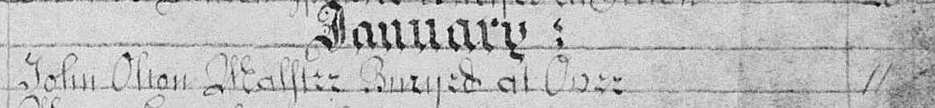 January :
John Olton Malster Buryed at Over 11